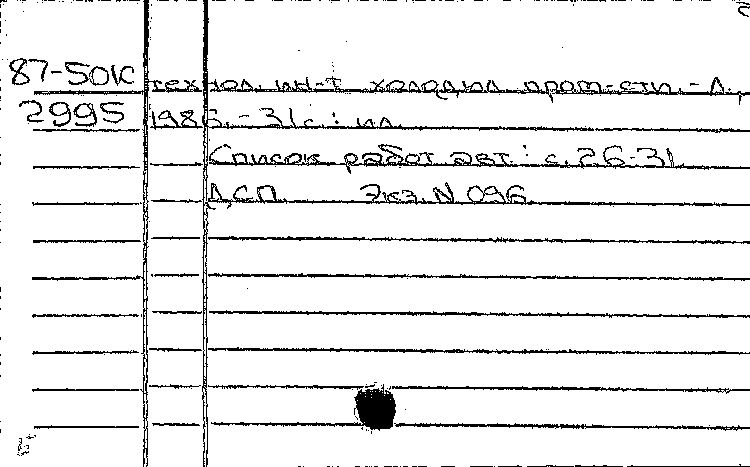 87-50К технол. ин-т холодил. пром-сти. - Л.,
2995 1986. - 31 с. : ил.
Список работ авт.: с. 26-31.
ДСП. Экз. N 096.